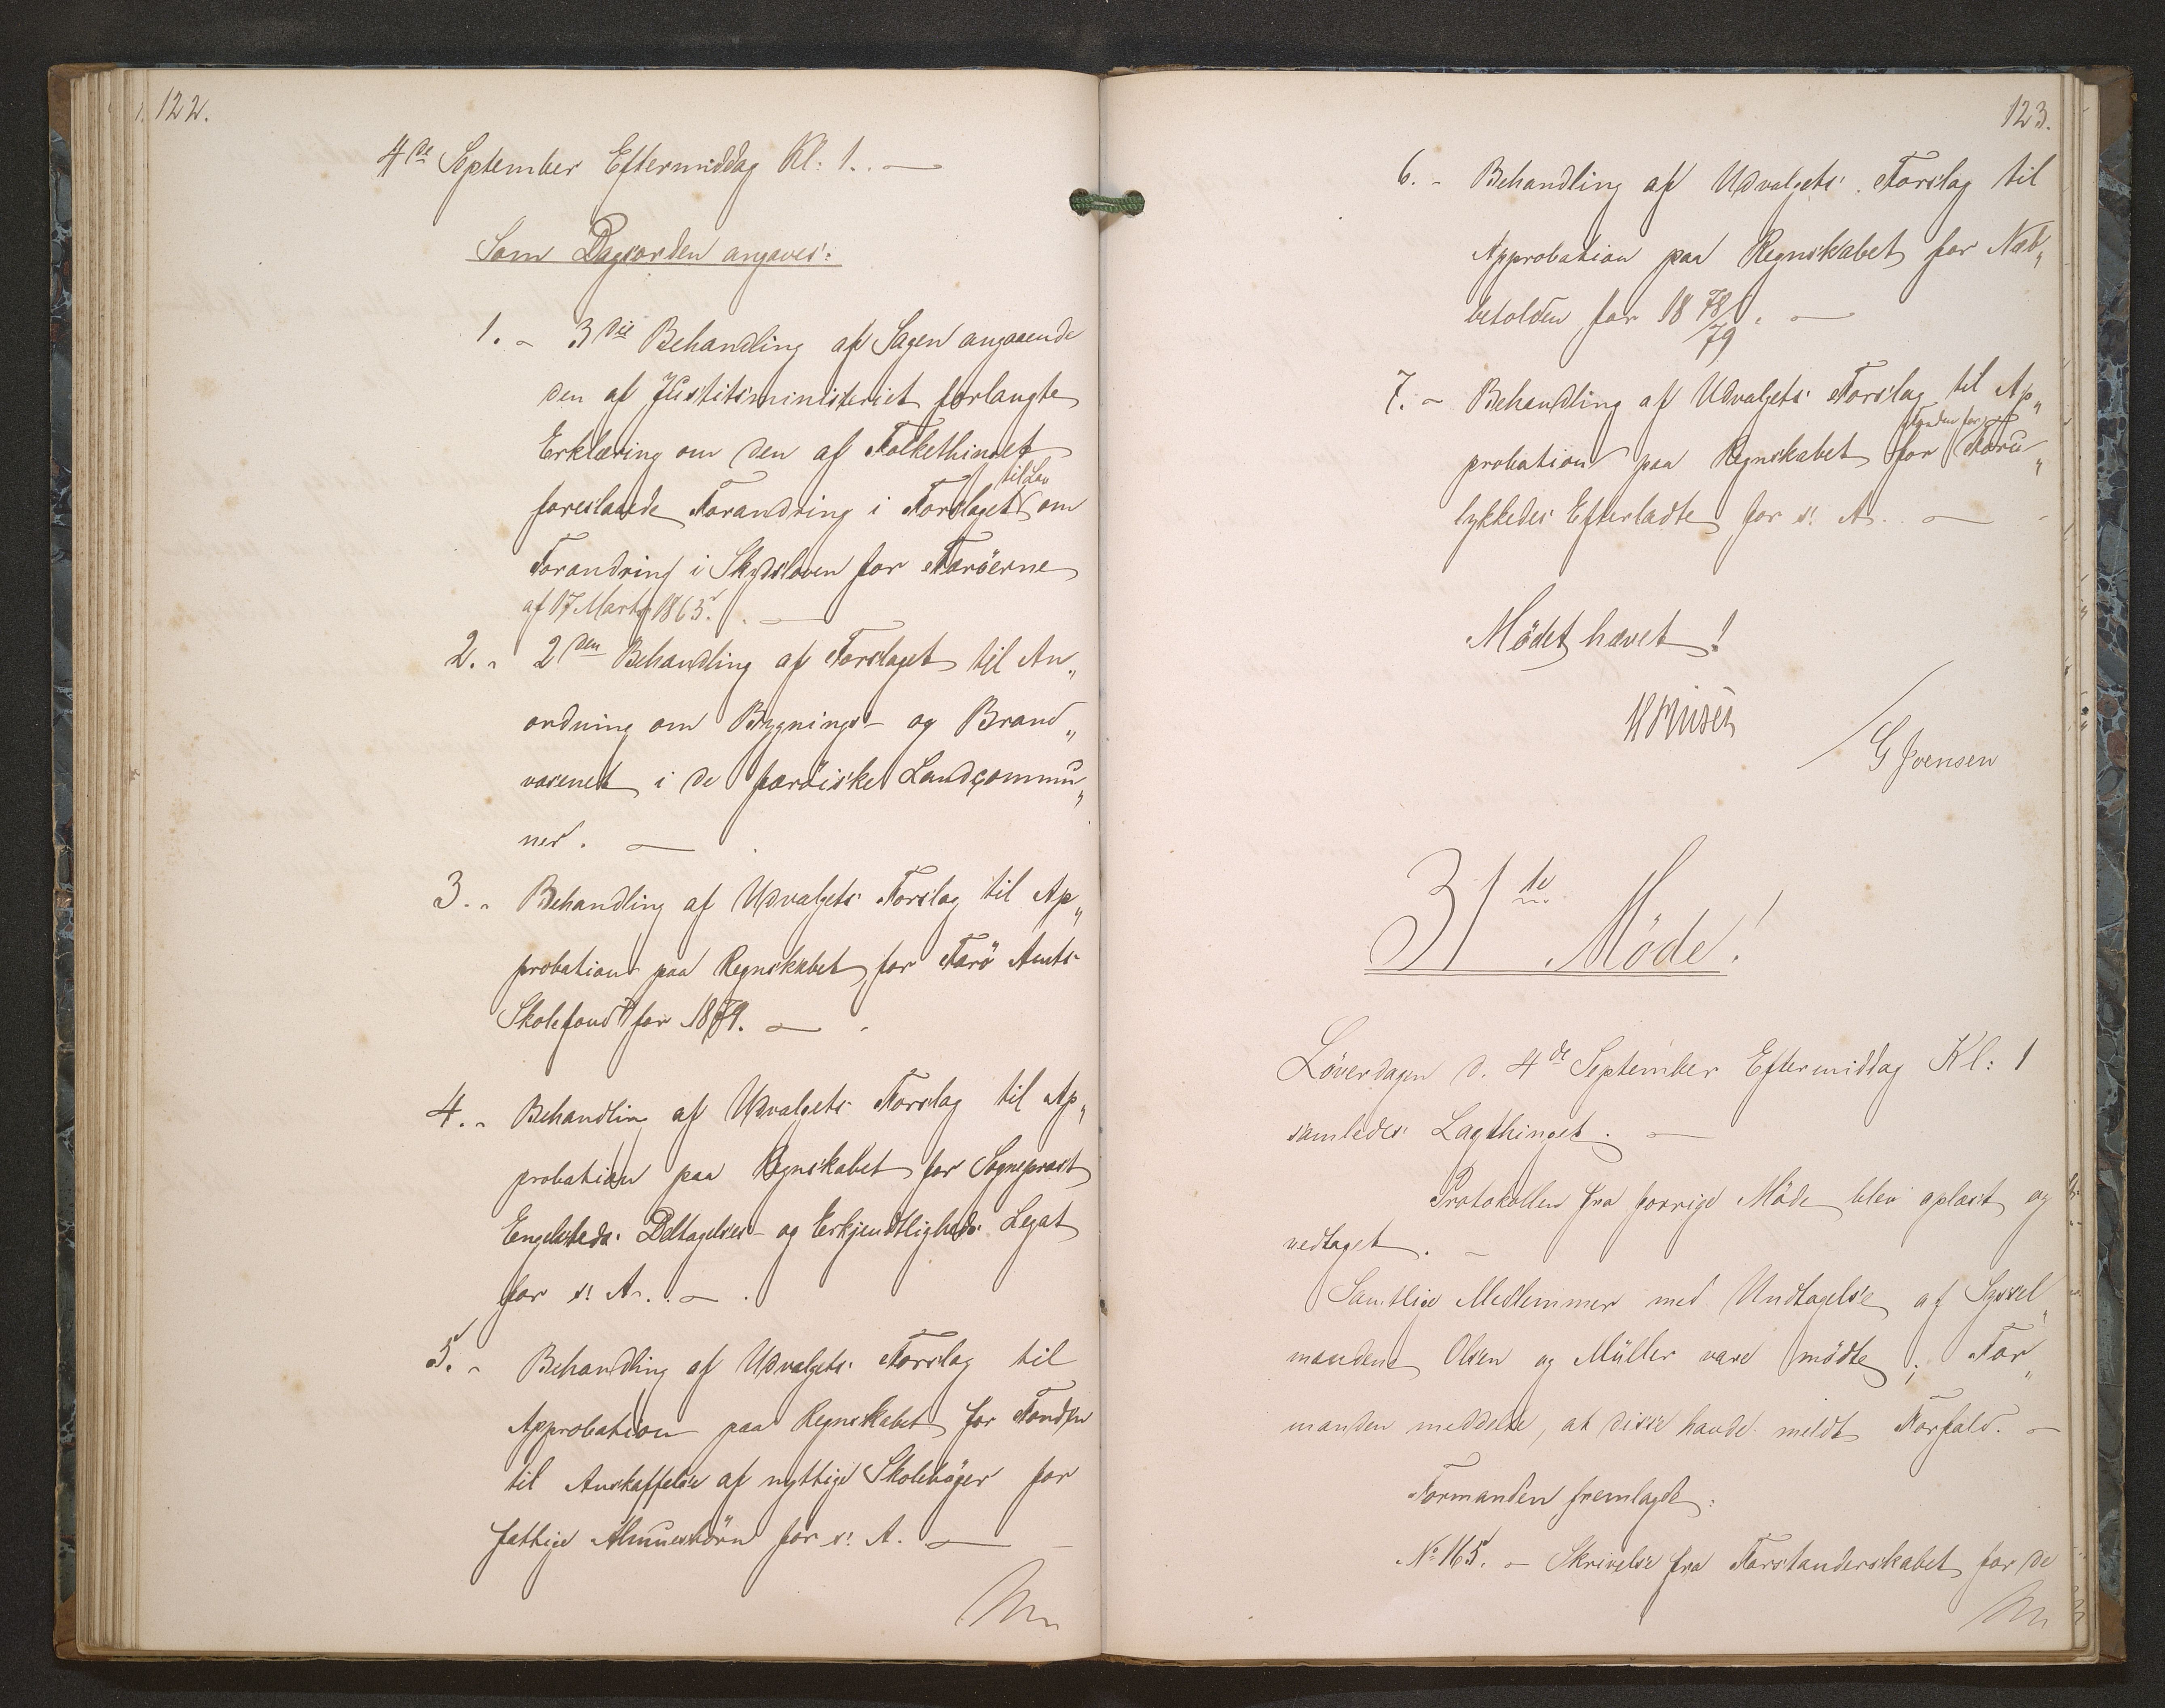 122.
4de September Eftermiddag Kl: 1. . —
Som Dagsorden angaves:
1. - 3die Behandling af Sagen angaaende
den af Justitsministeriet forlangte
Erklæring om den af Folkethinget
til Lov
foreslaaede Forandring i Forslaget om
Forandring i Skydsloven for Færöerne
af 17 Marts 1865. . —
2. - 2den Behandling af Forslaget til An„
ordning om Bygnings- og Brand„
væsenet i de færöiske Landcommu„
ner. —
3. - Behandling af Udvalgets Forslag til Ap„
probation paa Regnskabet for Færö Amts
Skolefond for 1879. —
4. - Behandling af Udvalgets Forslag til Ap„
probation paa Regnskabet for Sognepræst
Engelsteds Deltagelses- og Erkjendtligheds Legat
for s. A. . —
5. - Behandling af Udvalgets Forslag til
Approbation paa Regnskabet for Fonden
til Anskaffelse af nyttige Skolebøger for
fattige Almuesbörn for s. A. —
123.
6. - Behandling af Udvalgets Forslag til
Approbation paa Regnskabet for Næb„
betolden for 1878/79. —
7. - Behandling af Udvalgets Forslag til Ap„
Fonden for
probation paa Regnskabet for Foru„
lykkedes Efterladte for s. A. . —
Mödet hævet!
G Joensen
31te Möde!
Löverdagen d. 4de September Eftermiddag Kl: 1
samledes Lagthinget. —
Protokollen fra forrige Möde blev oplæst og
vedtaget. —
Samtlige Medlemmer med Undtagelse af Syssel„
mændene Olsen og Müller vare mödte; For„
manden meddelte, at disse havde meldt Forfald. —
Formanden fremlagde:
No 165. - Skrivelse fra Forstanderskabet for de